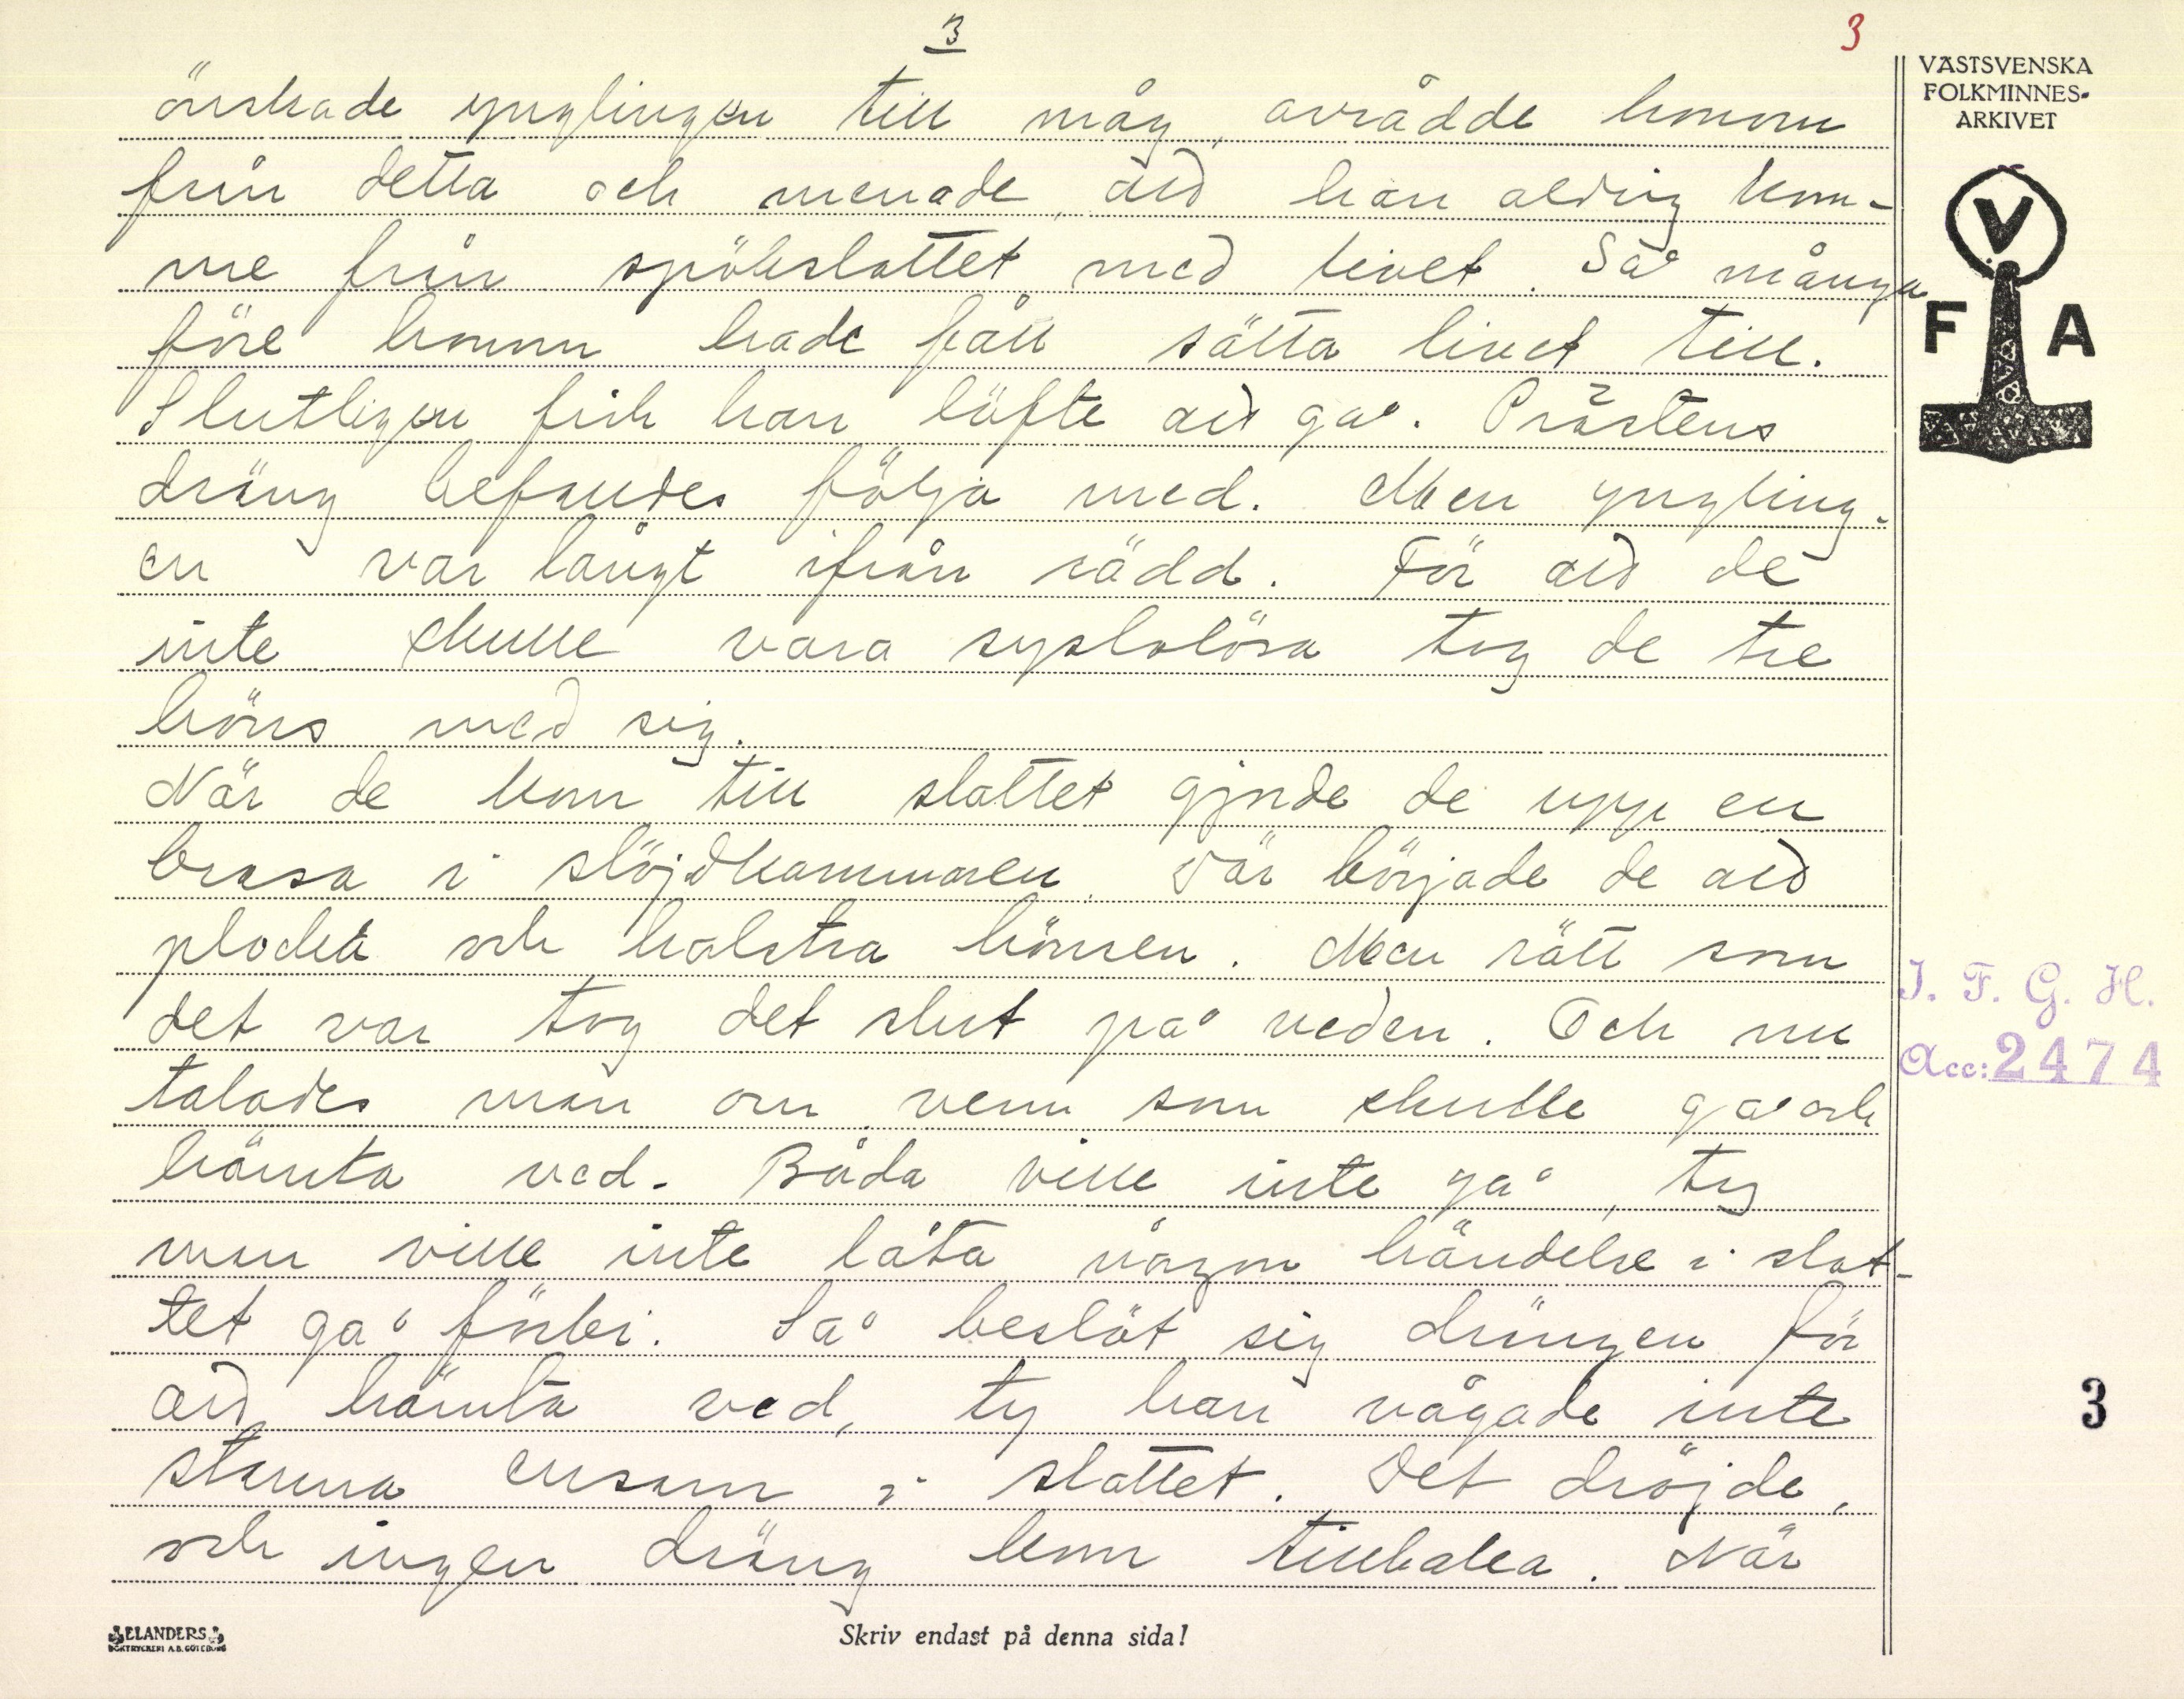 3
3
VÄSTSVENSKA
FOLKMINNES-
ARKIVET
V
F A
önskade ynglingen till måg, avrådde honom
från detta och menade, att han aldrig kom-
me från spökslottet med livet. Så många
före honom hade fått sätta livet till.
Slutligen fick han löfte att gå. Prästens
dräng befandes följa med. Men yngling-
en var långt ifrån rädd. För att de
inte skulle vara sysslolösa tog de tre
höns med sig.
När de kom till slottet gjorde de upp en
brasa i slöjdkammaren. Där började de att
plocka och halstra hönsen. Men rätt som
det var tog det slut på veden. Och nu
talades man om vem som skulle gå och
hämta ved. Båda ville inte gå, ty
man ville inte låta någon händelse i slot-
tet gå förbi. Så beslöt sig drängen för
att hämta ved, ty han vågade inte
stanna ensam i slottet. Det dröjde,
och ingen dräng kom tillbaka. När
I. F. G. H.
Acc: 2474
3
ELANDERS
BOKTRYCKERI A.B. GÖTEBORG
Skriv endast på denna sida!